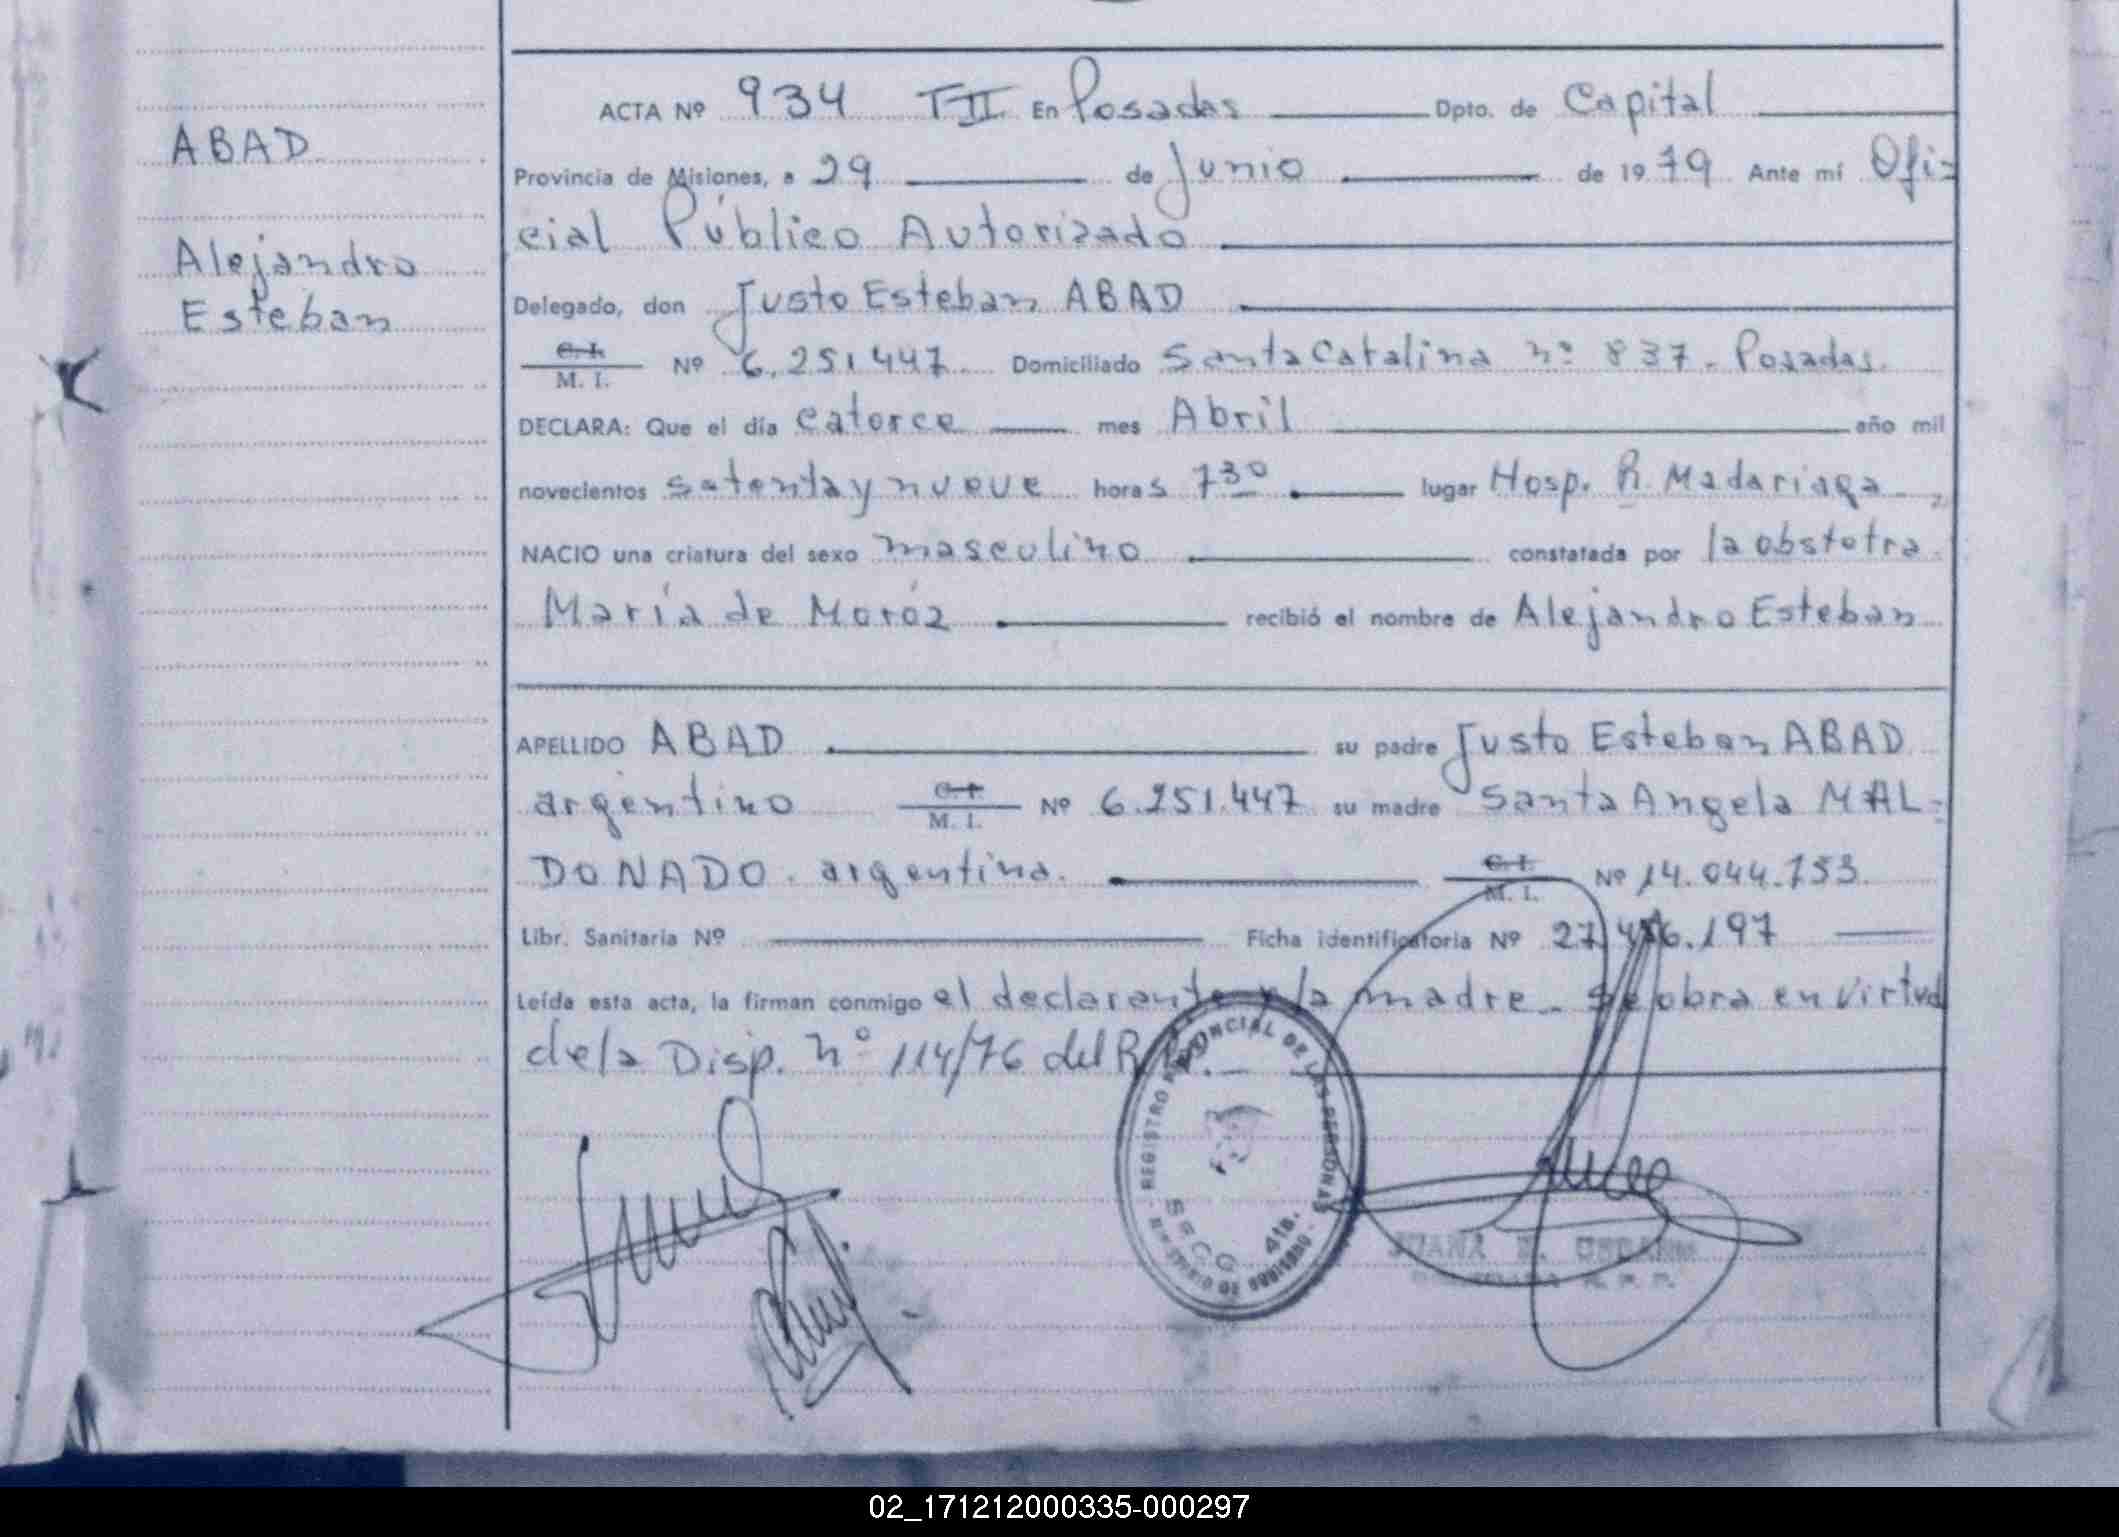 ABAD
Alejandro
Esteban
ACTA Nº 934 TII En Posadas Dpto. de Capital
Provincia de Misiones, a 29 de Junio de 1979 Ante mí Ofi=
cial Público Autorizado
Delegado, don Justo Esteban ABAD
C. I.
M. I. Nº 6.251.447 Domiciliado Santa Catalina nº 837. Posadas.
DECLARA: Que el día catorce mes Abril año mil
novecientos setenta y nueve horas 7 30 lugar Hosp. R. Madariaga
NACIO una criatura del sexo masculino constatada por la obstetra
María de Moróz recibió el nombre de Alejandro Esteban
APELLIDO ABAD su padre Justo Esteban ABAD
argentino C. I.
M. I. Nº 6.251.447 su madre Santa Angela MAL=
DONADO. argentina. C. I.
M. I. Nº 14.044.753
Libr. Sanitaria Nº Ficha identificatoria Nº 27.456.197
Leída esta acta, la firman conmigo el declarante y la madre. Se obra en virtud
de la Disp. nº 114/76 del R.
REGISTRO PROVINCIAL DE LAS PERSONAS
SECC. 4ta.
MINISTERIO DE GOBIERNO
JUANA
02_171212000335-000297